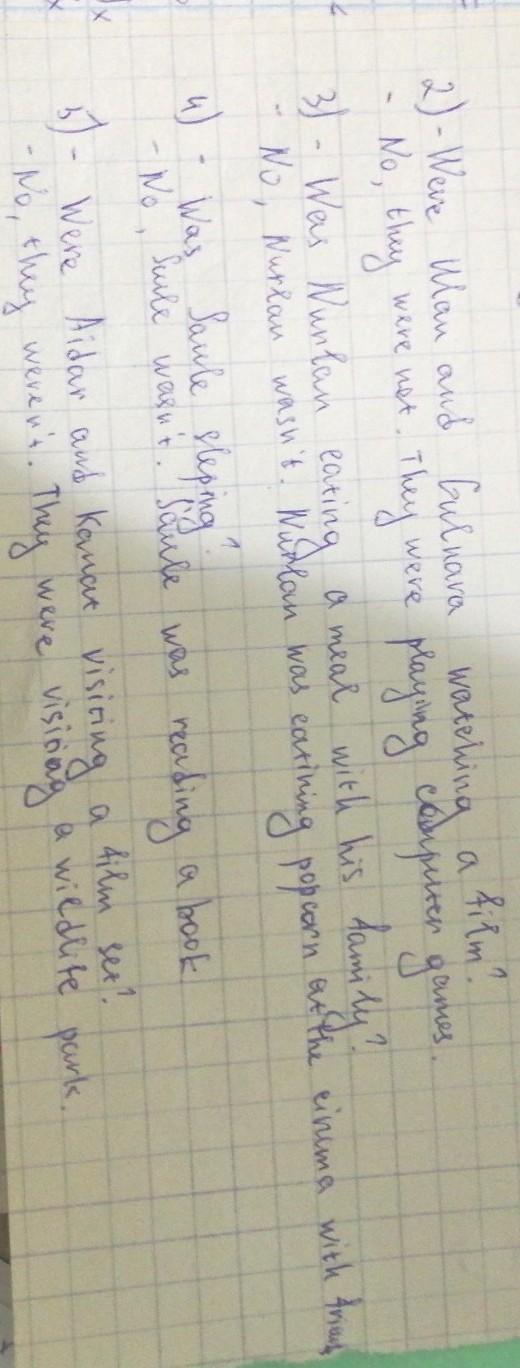 2) - Were Ulan and Gulnara watching a film?
- No, they were not. They were playing computer games.
3) - Was Nurlan eating a meal with his family?
- No, Nurlan wasn't. Nurlan was eatining popcorn at the cinema with
4) - Was Saule sleping?
- No, Saule wasn't. Saule was reading a book.
5) - Were Aidar and Kanat visiting a film set?
- No, they weren't. They were visiting a wildlife park.